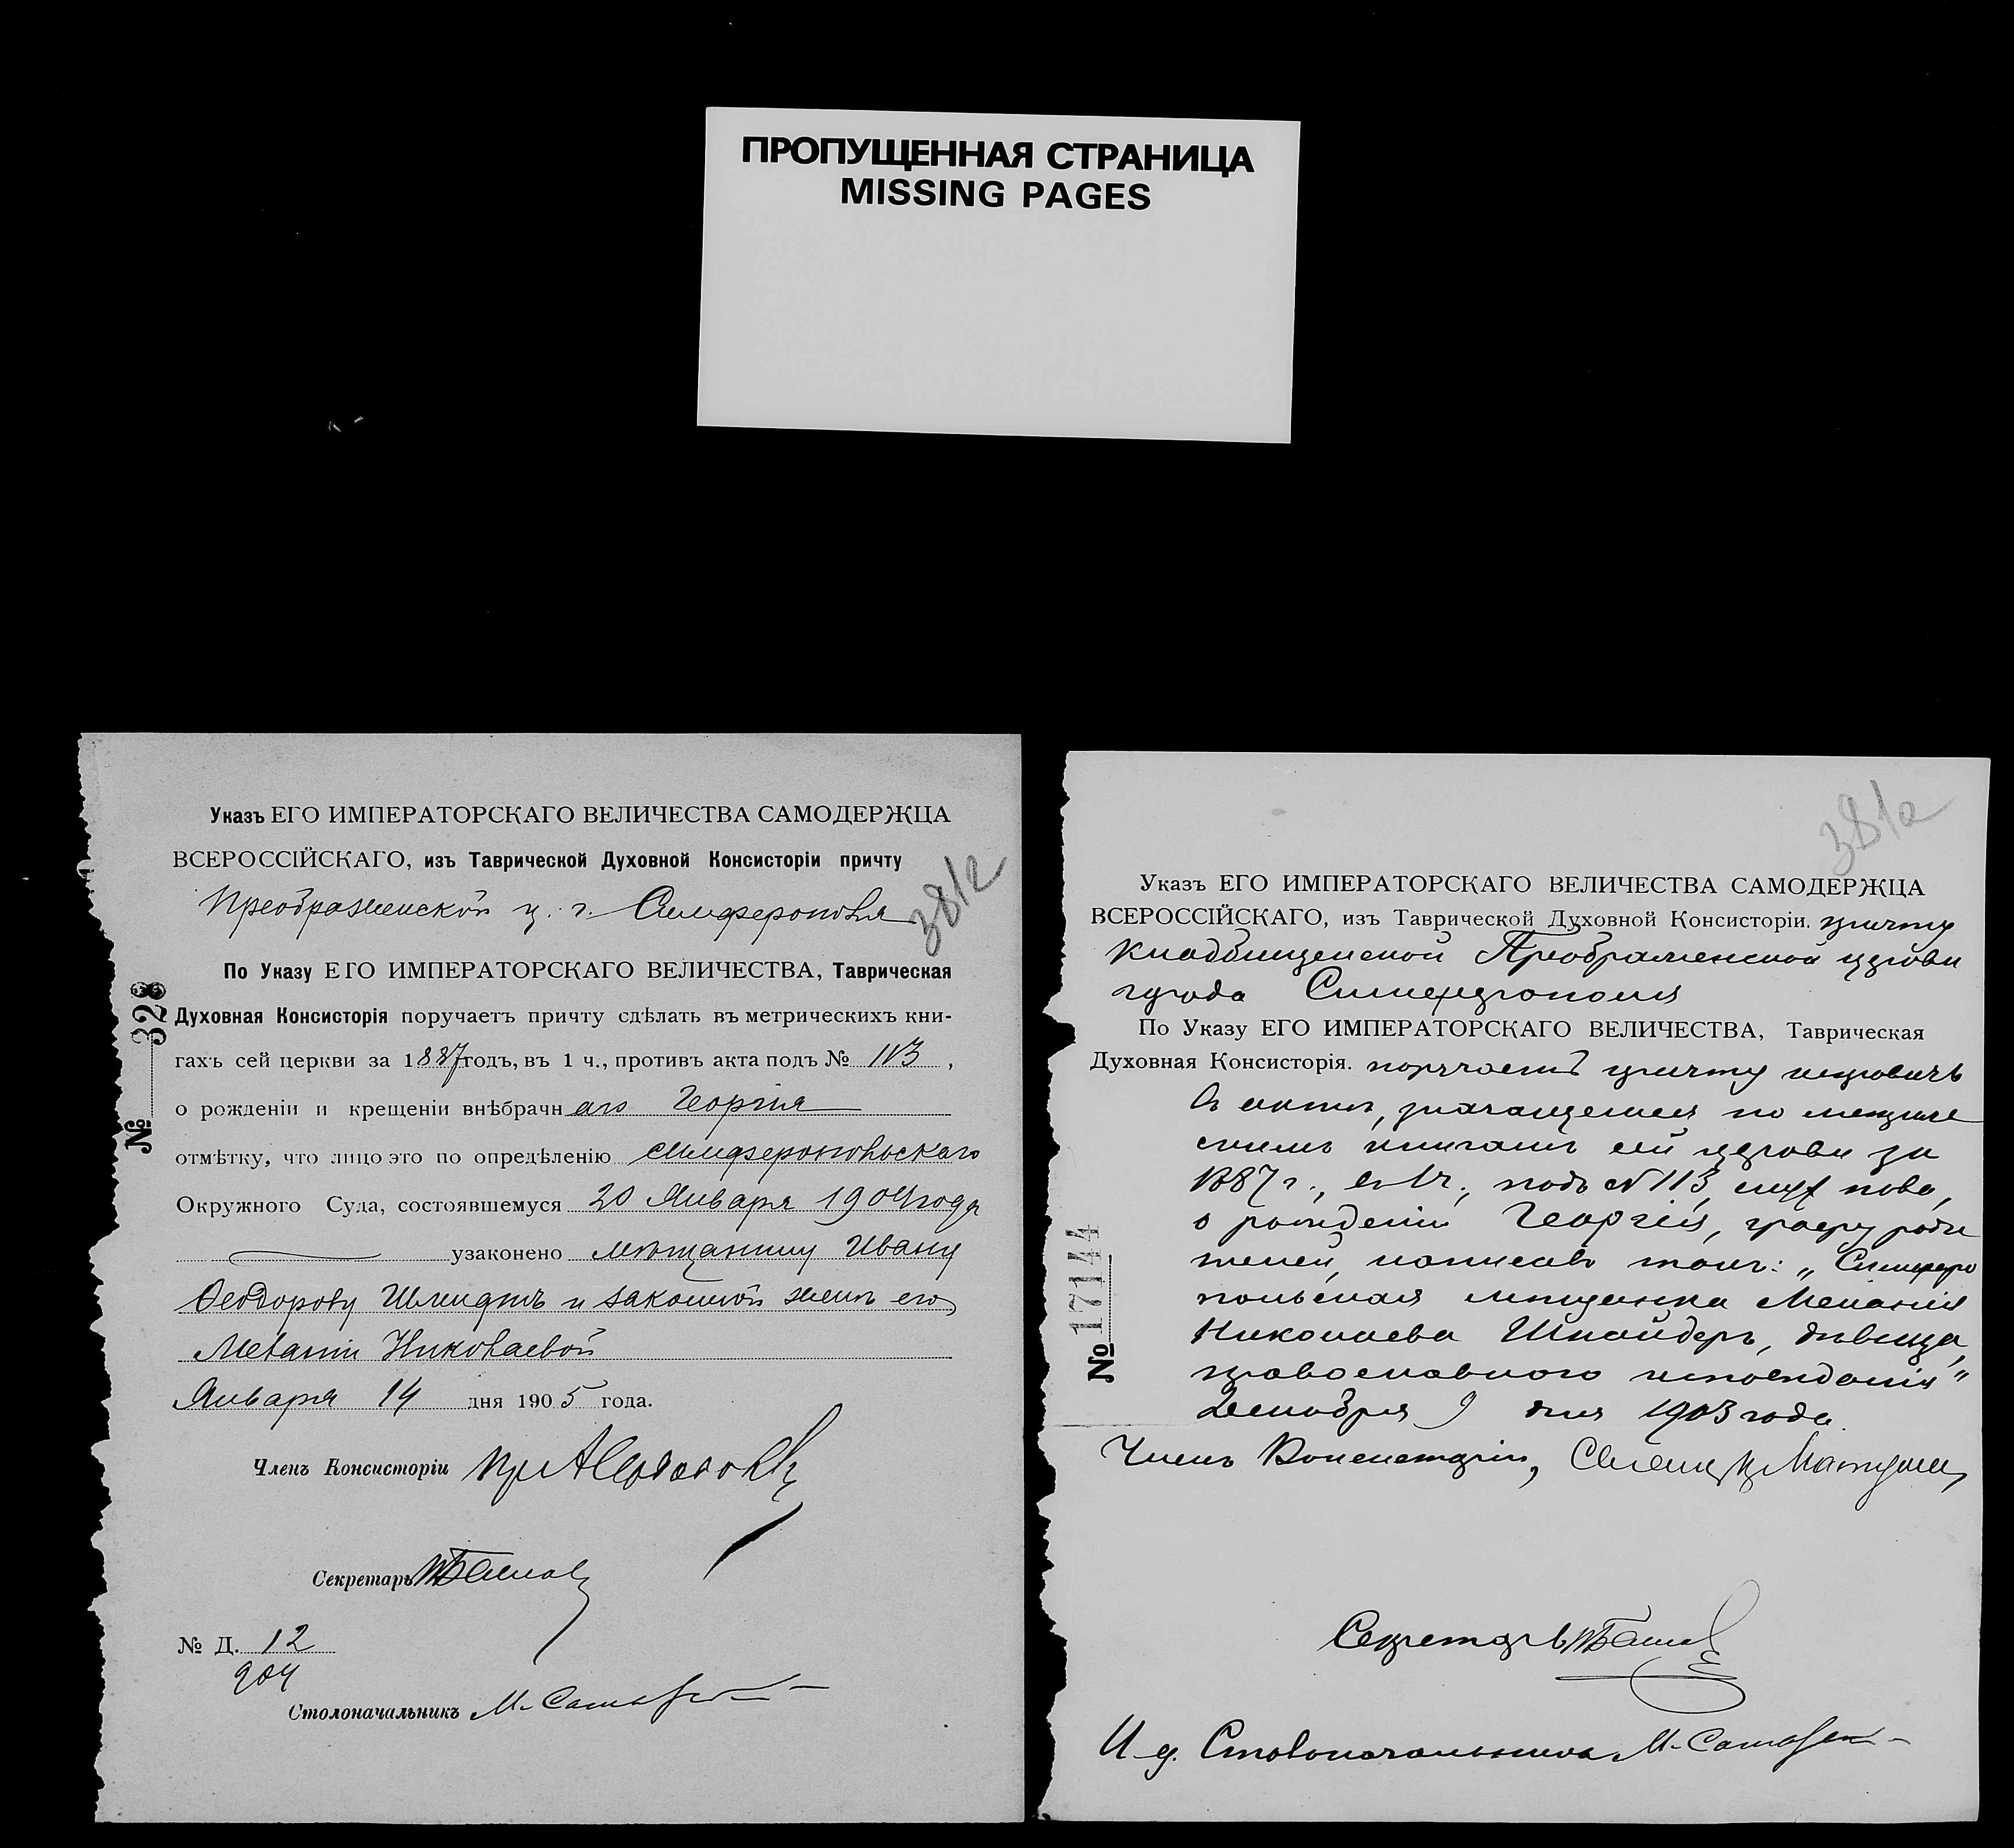 ПРОПУЩЕННАЯ СТРАНИЦА
MISSING PAGES
Указъ ЕГО ИМПЕРАТОРСКАГО ВЕЛИЧЕСТВА САМОДЕРЖЦА
ВСЕРОССІЙСКАГО, изъ Таврической Духовной Консисторіи причту
Преображенской ц. г. Симферополя
381а
По Указу ЕГО ИМПЕРАТОРСКАГО ВЕЛИЧЕСТВА, Таврическая
Духовная Консисторія поручаетъ причту сдѣлать въ метрическихъ кни-
гахъ сей церкви за 1887 годъ, въ 1 ч., противъ акта подъ № 113,
о рожденіи и крещеніи внѣбрачнаго Георгія
отмѣтку, что лицо это по опредѣленію Симферопольскаго
Окружного Суда, состоявшемуся 20 Января 1904 года
узаконено мѣщанину Ивану
Ѳеодорову Шмидтъ и законной женѣ его
Меланіи Николаевой
Января 14 дня 1905 года.
№ 328
Членъ Консисторіи
Секретарь
№ Д. 12
904
Столоначальникъ М.
381а
Указъ ЕГО ИМПЕРАТОРСКАГО ВЕЛИЧЕСТВА САМОДЕРЖЦА
ВСЕРОССІЙСКАГО, изъ Таврической Духовной Консисторіи. причту
Кладбищенской Преображенской церкви
города Симферополя
По Указу ЕГО ИМПЕРАТОРСКАГО ВЕЛИЧЕСТВА, Таврическая
Духовная Консисторія. поручаетъ причту исправить
въ актѣ, значащемся по метриче
скимъ книгамъ сей церкви за
1887 г., въ 1 ч., подъ № 113, муж пола,
о рожденіи Георгія, графу роди
телей, написавъ такъ: „Симферо
польская мѣщанка Меланія
Николаева Шнайдеръ, дѣвица,
православнаго исповѣданія"
Декабря 9 дня 1903 года.
№ 17144
Членъ Консисторіи, Священникъ
Секретарь
И. д. Столоначальника М.